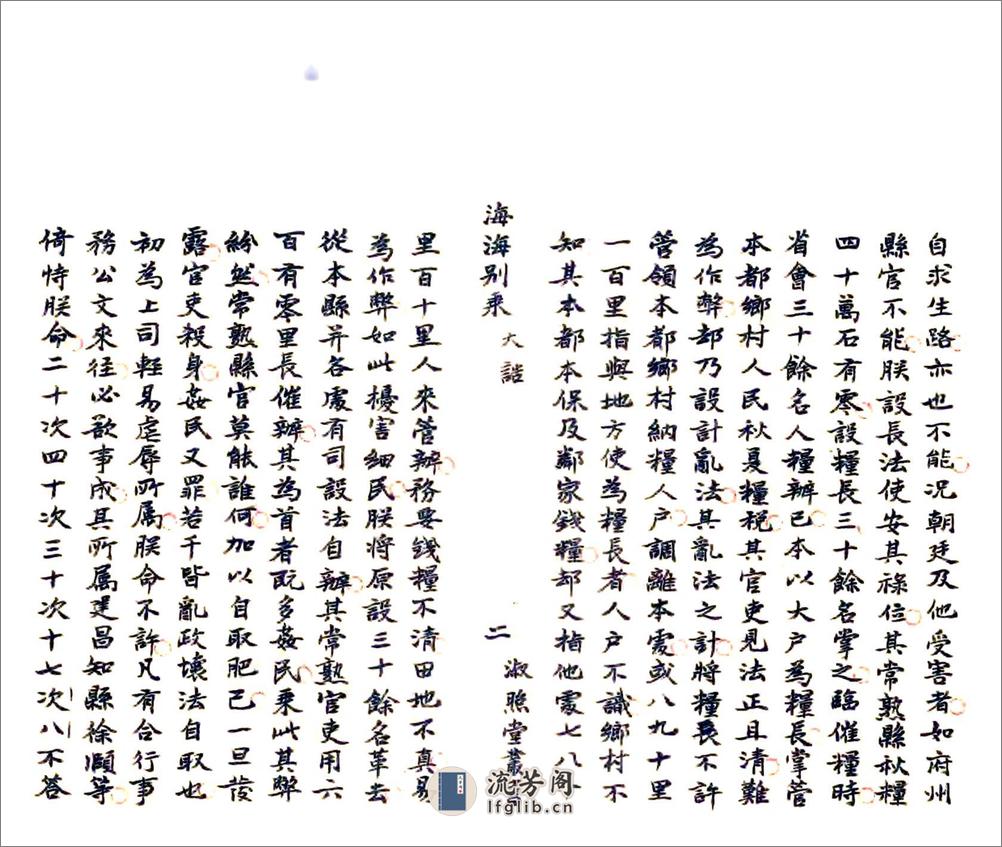 自求生路亦也不能况朝廷及他受害者如府州
縣官不能朕設長法使安其祿位其常熟縣秋糧
四十萬石有零設糧長三十餘名掌之臨催糧時
省會三十餘名人糧辦已本以大户為糧長掌管
本都鄉村人民秋夏糧稅其官吏見法正且清難
為作弊却乃設計亂法其亂法之計將糧長不許
管領本都鄉村納糧人户調離本處或八九十里
一百里指與地方使為糧長者人户不識鄉村不
知其本都本保及鄰家錢糧却又指他處七八十
海海别乘 大誥 二 淑照堂叢書
里百十里人來管辦務要錢糧不清田地不真易
為作弊如此擾害細民朕將原設三十餘名革去
從本縣并各處有司設法自辦其常熟官吏用六
百有零里長催辦其為首者既多姦民乘此其弊
紛然常熟縣官莫能誰何加以自取肥己一旦發
露官吏殺身姦民又罪若干皆亂政壞法自取也
初為上司輕易虐辱所属朕命不許凡有合行事
務公文來往必欲事成其所属建昌知縣徐頤等
倚恃朕命二十次四十次三十次十七次八不答
流芳阁
lfglib.cn